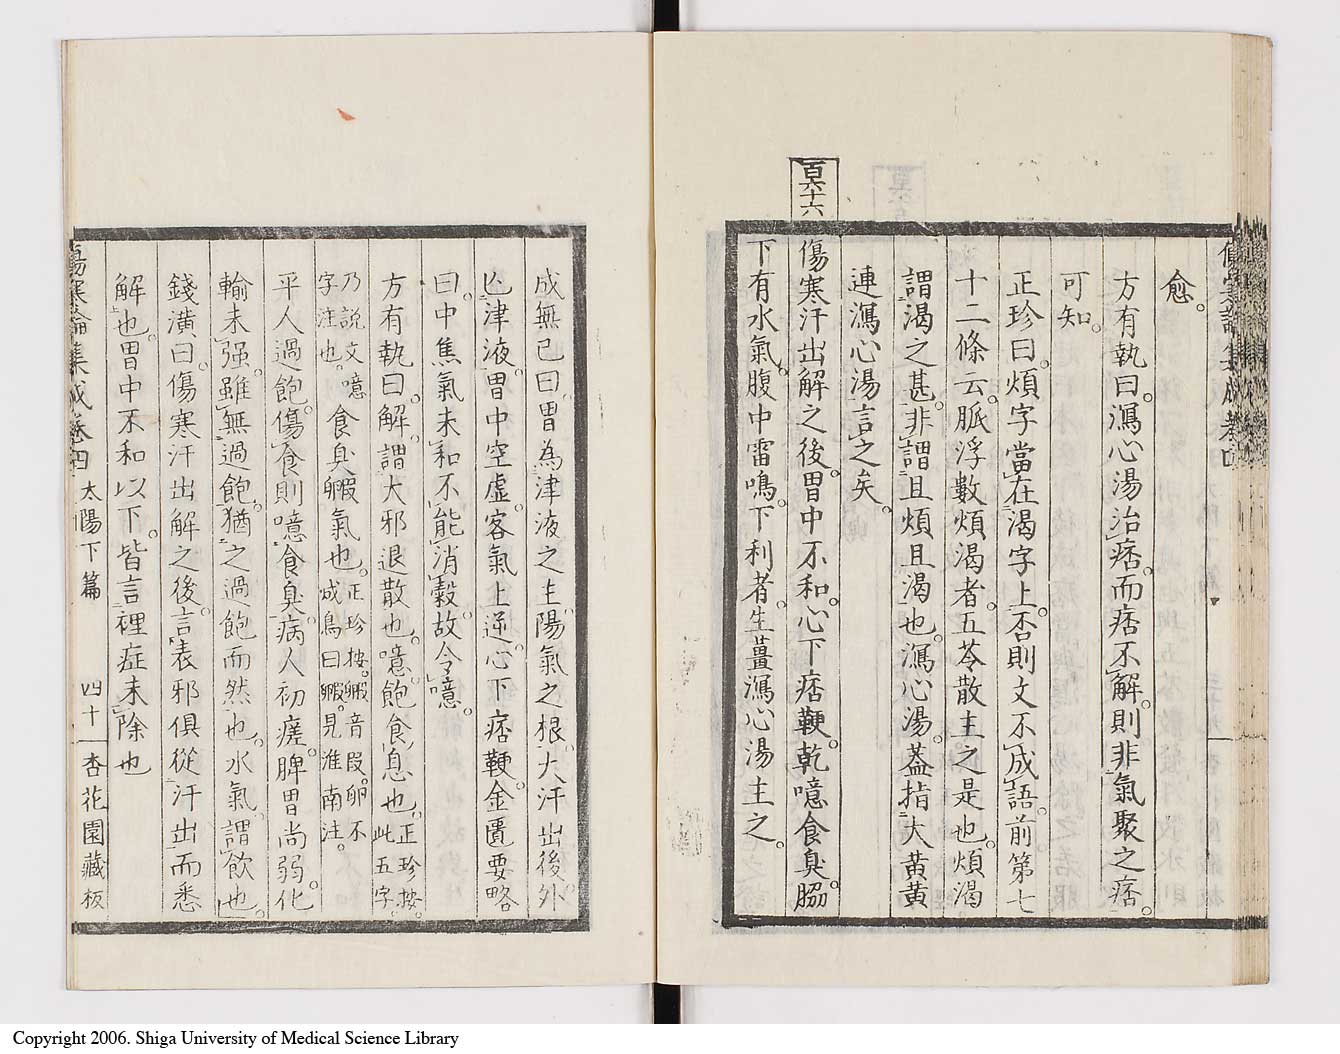 愈。
方有執曰瀉心湯治痞。而痞不解。則非氣聚之痞。
可知。
正珍曰。煩字當在渴字上。否則文不成語。前第七
十二條云。脈浮數煩渴者。五苓散主之是也。煩渴
謂渴之甚。非謂且煩且渴也。瀉心湯。蓋指大黃黃
連瀉心湯言之矣。
百六十六
傷寒汗出解之後。胃中不和。心下痞鞕。乾噫食臭。脇
下有水氣。腹中雷鳴。下利者。生薑瀉心湯主之。
成無已曰。胃為津液之主。陽氣之根。大汗出後。外
亾津液。胃中空虛。客氣上逆。心下痞鞕。金匱要略
曰。中焦氣未和。不能消穀。故令噫。
方有執曰。解。謂大邪退散也。噫。飽食息也。正珍按。此五字。
乃說文噫字注也。食臭。䭊氣也。正珍按。䭊音叚。卵不成鳥曰䭊。見淮南注。
平人過飽傷食。則噫食臭。病人初瘥。脾胃尚弱。化
輸未強。雖無過飽。猶之過飽而然也。水氣。謂飲也。
錢潢曰。傷寒汗出解之後。言表邪俱從汗出而悉
解也。胃中不和以下。皆言裡症未除也
傷寒論集成卷四 太陽下篇 四十 杏花園藏板
Copyright 2006. Shiga University of Medical Science Library